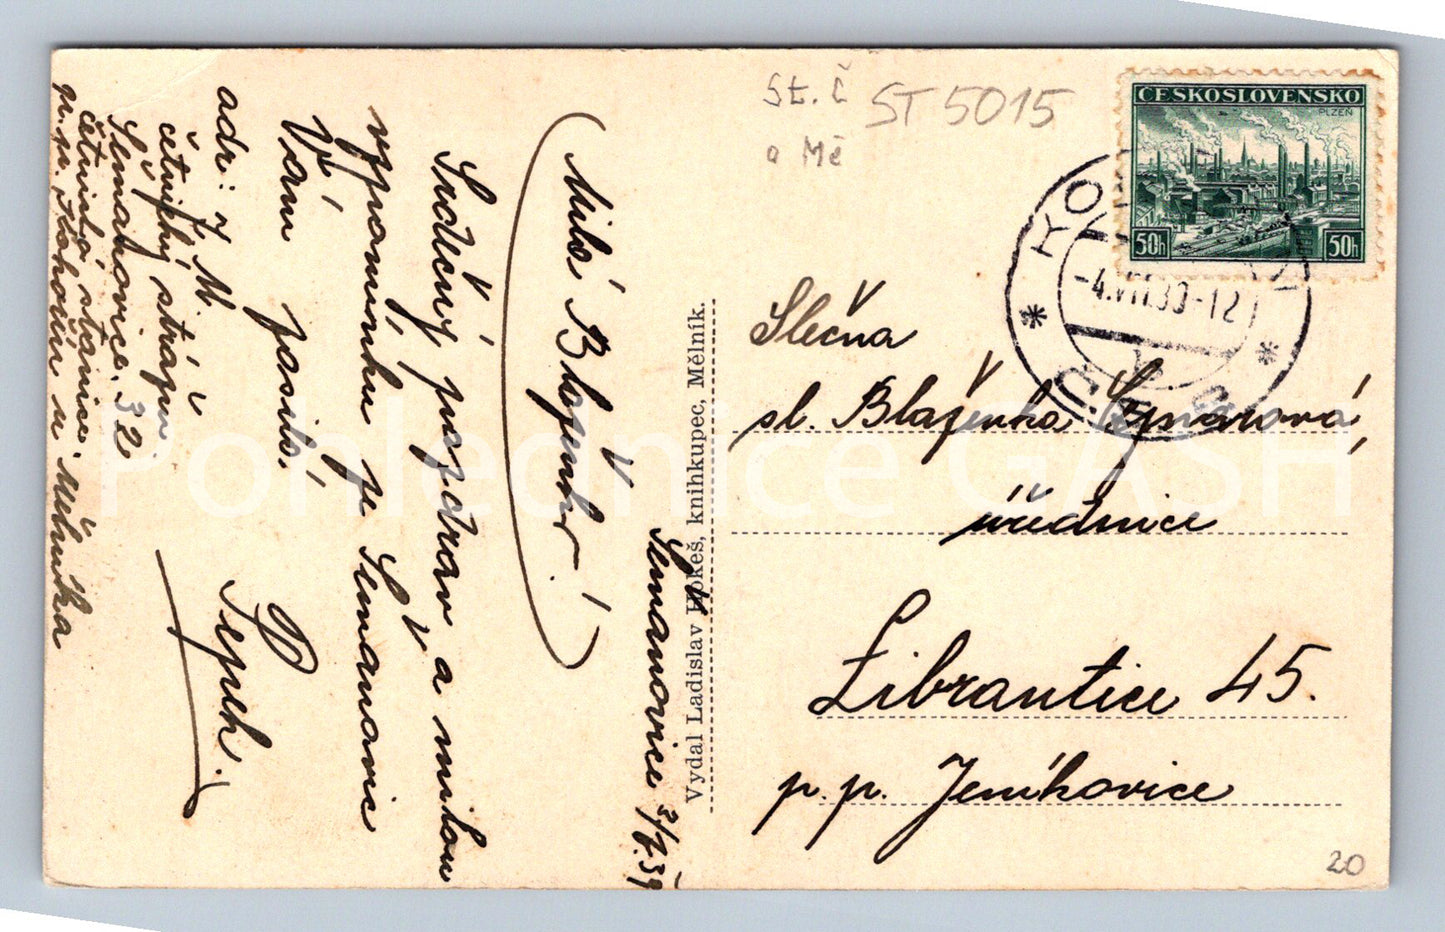 St. č ST 5015
a Mě
ČESKOSLOVENSKO
PLZEŇ
50h 50h
-4.VII.39-12
Slečna
sl. Blaženka
úřednice
Librantice 45.
p. p. Jeníkovice
20
Vydal Ladislav Hokeš, knihkupec, Mělník.
Semanovice 3/7.39
Milá Blaženko!
Srdečný pozdrav a milou
vzpomínku ze Semanovic
Vám zasílá
Pepík.
adr: J. M.
četnický strážm.
Semanovice 32
četnická stanice
u Mělníka
Pohlednice GASH